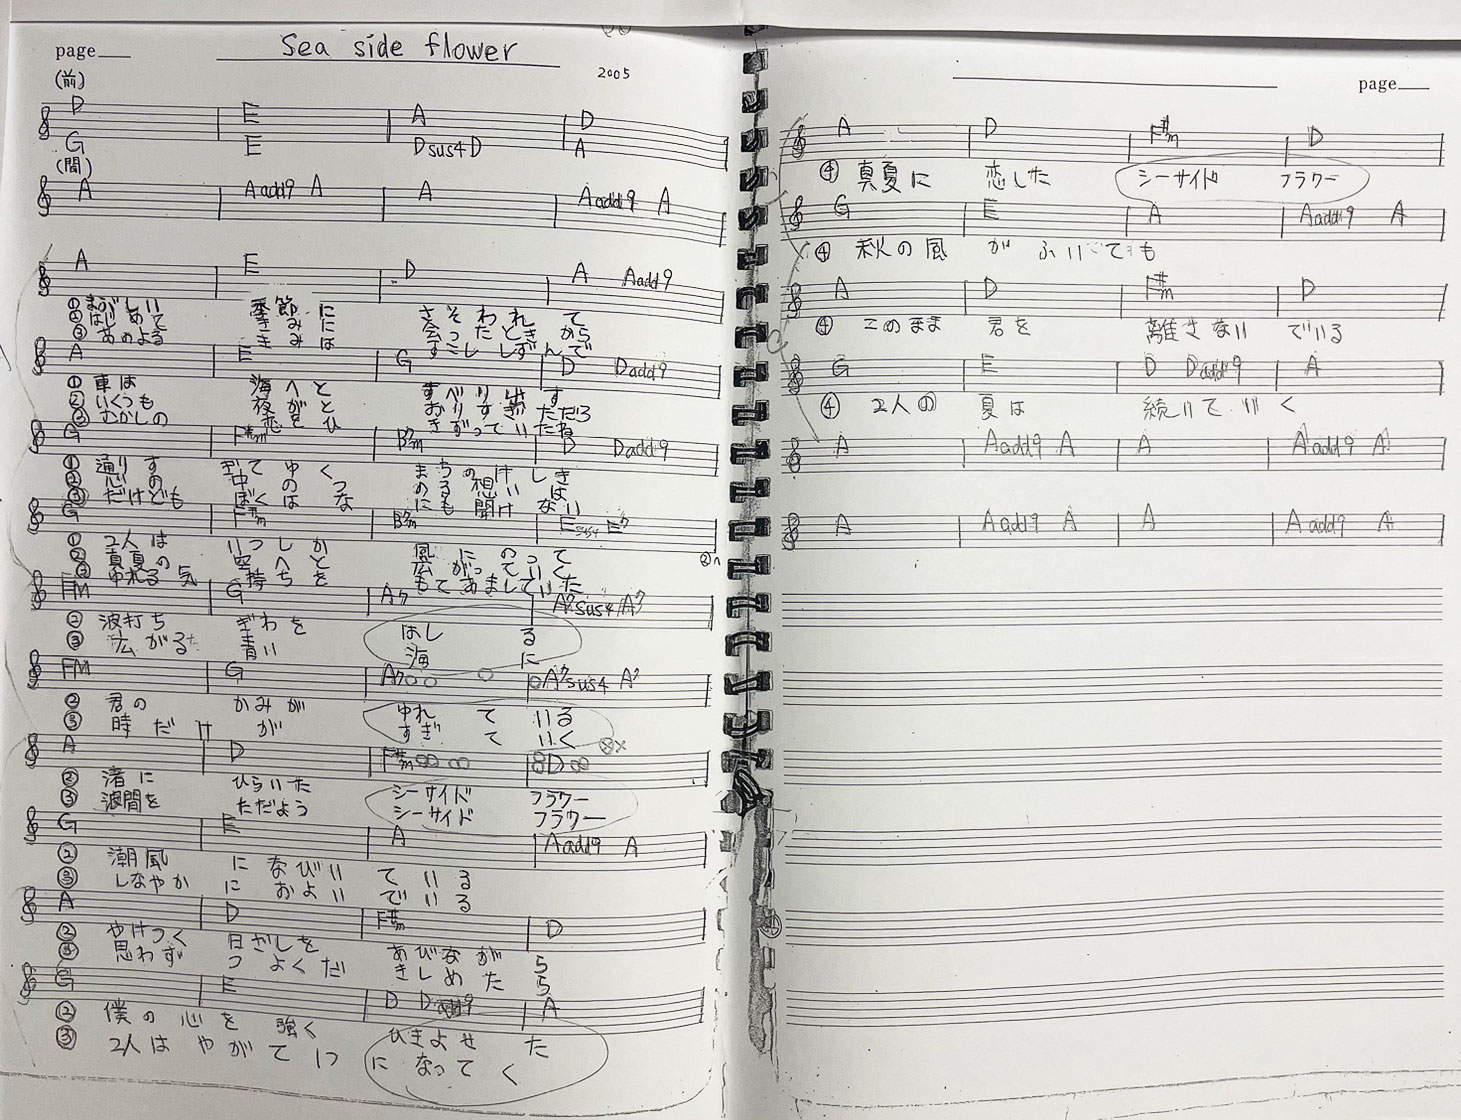 page
Sea side flower
2005
(前)
D E A D
G E Dsus4 D A
(間)
A Aadd9 A A Aadd9 A
A E D A Aadd9
① まぶしい 季節に さそわれて
② はじめて きみに 会ったときから
③ あのよる きみは すこししずんで
A E G D Dadd9
① 車は 海へと すべり出す
② いくつも 夜が おりすぎただろ
③ むかしの 恋をひ きずっていたね
G F#m B7m D Dadd9
① 通りす ぎてゆく まちのけしき
② 心の 中の つのる想いは
③ だけども ぼくは なにも聞けない
G F#m B7m Esus4 E7
① 2人は いつしか 風にのって
② 真夏の 空へと 広がっていく
③ ゆれる気 持ちを もてあましていた
FM G A7 A7sus4 A7
② 波打ち ぎわを はしる
③ 広がる 青い 海に
FM G A7 A7sus4 A7
② 君の かみが ゆれている
③ 時だけ が すぎていく
A D F#m D
② 渚に ひらいた シーサイド フラワー
③ 波間を ただよう シーサイド フラワー
G E A Aadd9 A
② 潮風 になびい ている
③ しなやか におよい でいる
A D F#m D
② やけつく 日ざしを あびながら
③ 思わず つよくだ きしめたら
G E D Dadd9 A
② 僕の心を 強く ひきよせた
③ 2人は やがて 1つ になってく
page
A D F#m D
④ 真夏に 恋した シーサイド フラワー
G E A Aadd9 A
④ 秋の風 が ふいても
A D F#m D
④ このまま 君を 離さない でいる
G E D Dadd9 A
④ 2人の 夏は 続いて いく
A Aadd9 A A Aadd9 A
A Aadd9 A A Aadd9 A